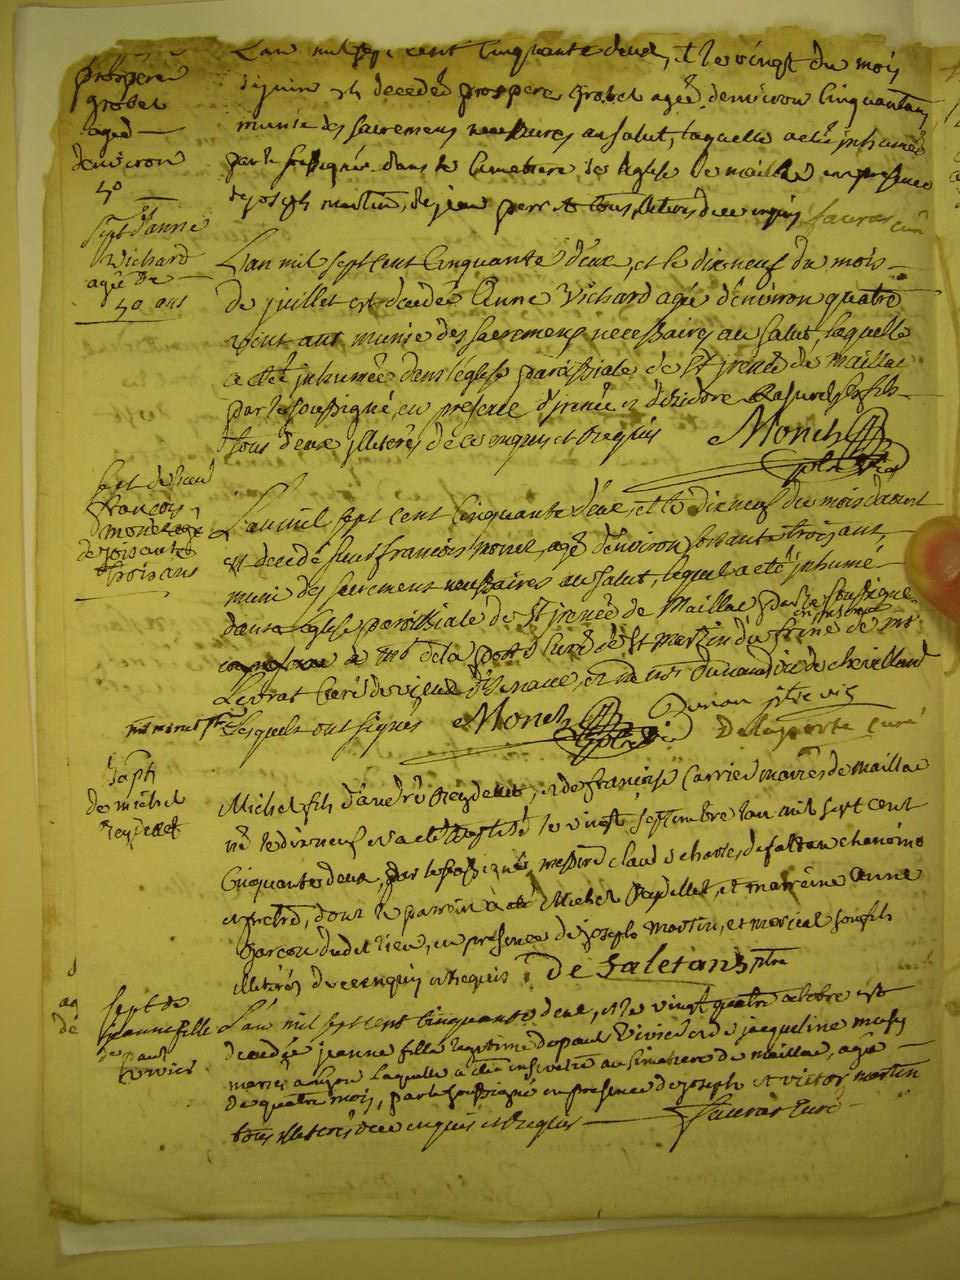 prospere
grobet
aged
denviron
50
L'an mil sept cent Cinquante deux, et le vingt du mois
de juin est decedée prospere grobet agée denviron Cinquantans
munie des sacremens necessaires au salut, laquelle a eté inhumée
par le soussigné dans le Cimetiere de l'eglise de maillac en presence
de joseph martin, de jean perret tous illiterés de ce enquis sauvas curé
sept d'anne
Vichard
agée de
50 ans
L'an mil sept cent Cinquante deux, et le dix neuf du mois
de juillet est decedée Anne Vichard agée d'environ quatre
vint ans munie des sacremens necessaires au salut, laquelle
a eté inhumée dans l'église paroissiale de St jrenée de Maillac
par le soussigné, en presence d'jrenée et d'isidore ses fils
tous deux jlliterés de ce enquis et requis Monet
sept de sieur
françois
monet agé
de soisante
trois ans
L'an mil sept cent Cinquante deux, et le dix neuf du mois daoust
est decedé sieur françois monet, agé d'environ soisante trois ans,
muni des sacremens necessaires au salut, lequel a eté inhumé
dans l'église paroissiale de St jrenée de Maillac par le soussigné
en presence
de mr de la porte Curé de St martin du frêne de mr
Levrat Curé de vieux d'Isenave, et de mr Dunan de chevillard
Lesquels ont signés Monet Dunan ptre vic
Delaporte curé
bapt
de michel
reydellet
Michel fils d'andré Reydellet, et de françoise Carrier mariés de maillac
né le dix neuf et a eté baptisé le vingt septembre l'an mil sept cent
Cinquante deux, par le soussigné messire claude charles de saletan chanoine
et pretre, dont le parrein a eté Michel Reydellet, et marreine Anne
garcon dudit lieu, en présence de joseph martin, et marcel son fils
illiterés de ce enquis et requis De Saletans ptre
sept de
jeanne fille
de paul
Vivier
L'an mil sept cent Cinquante deux, et le vingt quatre octobre est
decedée jeanne fille legitime de paul Vivier et de jacqueline
mariés a Lyon laquelle a eté ensevelie au Cimetiere de maillac, agée
de quatre mois, par le soussigné en presence de joseph et victor martin
tous illiterés de ce enquis et requis sauvas Curé